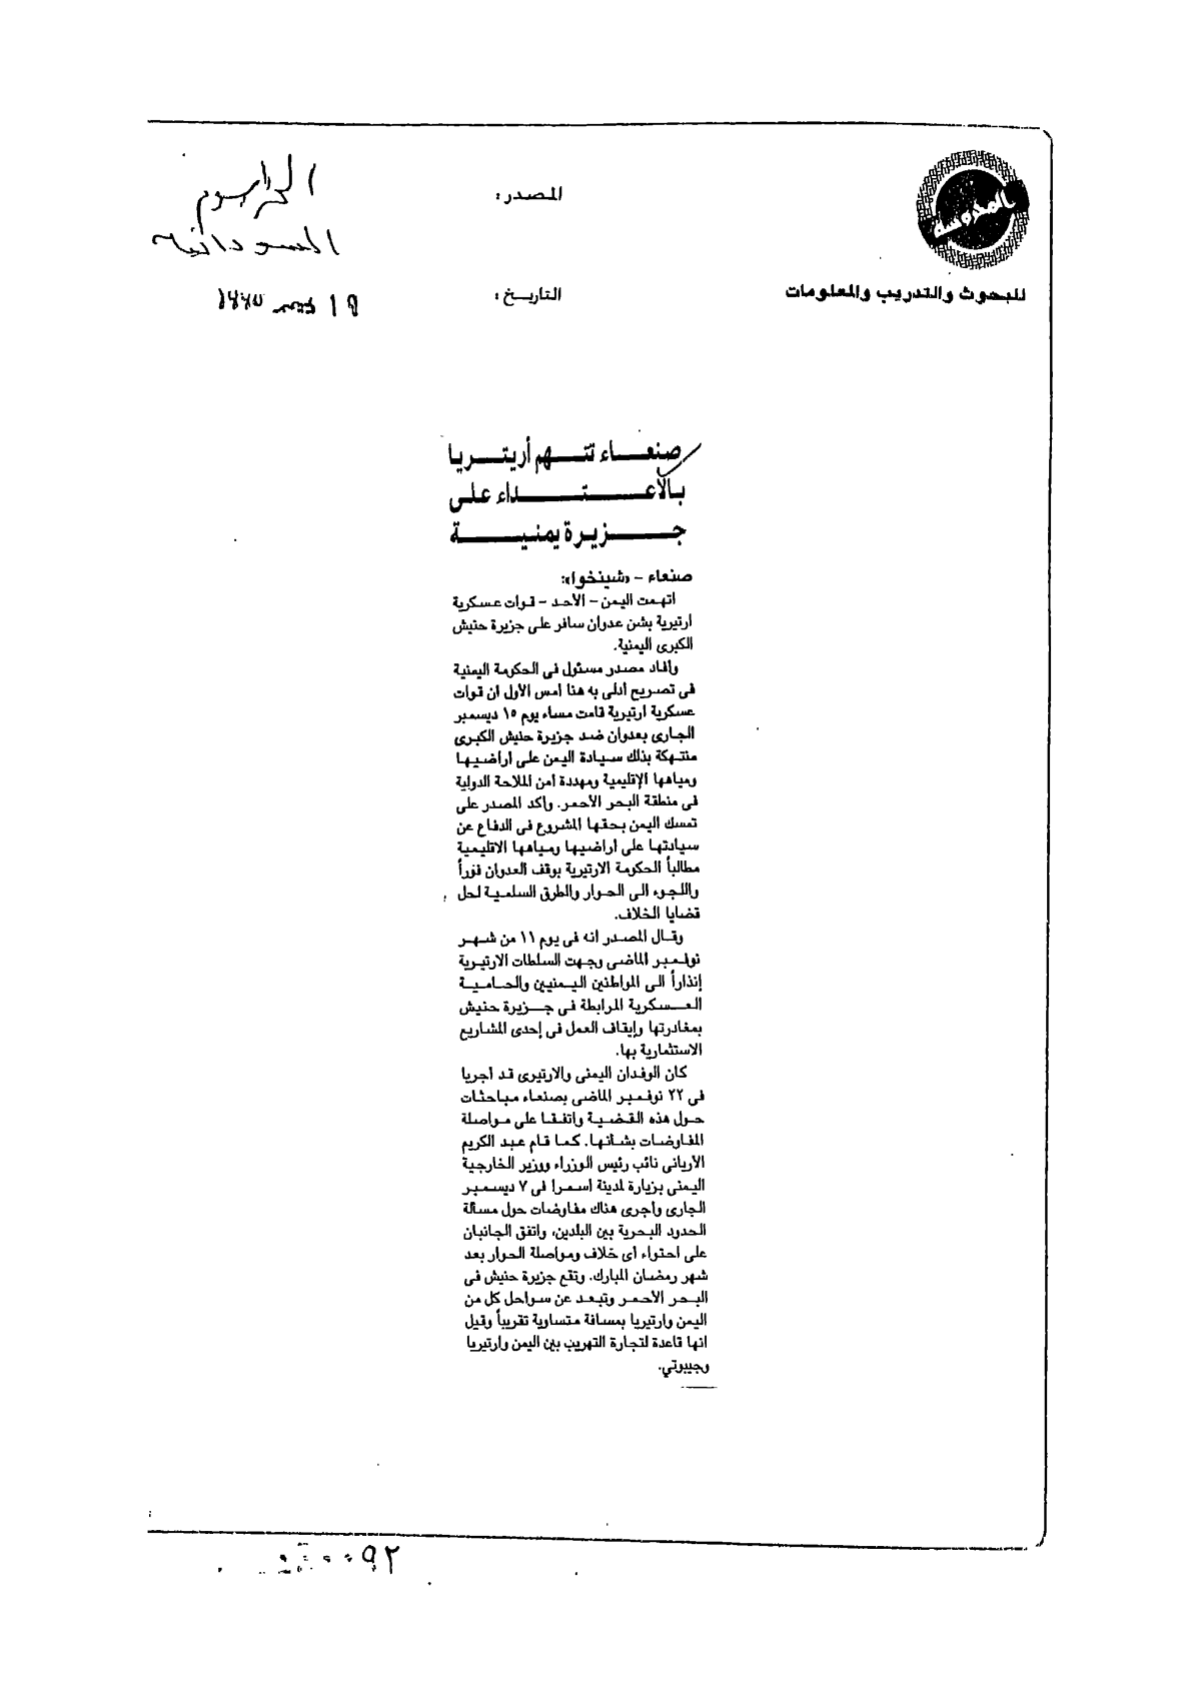 المصدر :
السودانية
للبحوث والتدريب والمعلومات
التاريخ :
١٩ ديسمبر ١٩٩٥
صنعاء تتهم أريتريا
بالاعتداء على
جزيرة يمنية
صنعاء – «شينخوا»:
اتهمت اليمن – الأحد – قوات عسكرية
ارتيرية بشن عدوان سافر على جزيرة حنيش
الكبرى اليمنية.
وأفاد مصدر مسئول فى الحكومة اليمنية
فى تصريح أدلى به هنا امس الأول ان قوات
عسكرية ارتيرية قامت مساء يوم ١٥ ديسمبر
الجارى بعدوان ضد جزيرة حنيش الكبرى
منتهكة بذلك سيادة اليمن على اراضيها
ومياهها الإقليمية ومهددة امن الملاحة الدولية
فى منطقة البحر الأحمر. وأكد المصدر على
تمسك اليمن بحقها المشروع فى الدفاع عن
سيادتها على اراضيها ومياهها الاقليمية
مطالباً الحكومة الارتيرية بوقف العدوان فوراً
واللجوء الى الحوار والطرق السلمية لحل
قضايا الخلاف.
وقال المصدر انه فى يوم ١١ من شهر
نوفمبر الماضى وجهت السلطات الارتيرية
إنذاراً الى المواطنين اليمنيين والحامية
العسكرية المرابطة فى جزيرة حنيش
بمغادرتها وإيقاف العمل فى إحدى المشاريع
الاستثمارية بها.
كان الوفدان اليمنى والارتيرى قد اجريا
فى ٢٢ نوفمبر الماضى بصنعاء مباحثات
حول هذه القضية واتفقا على مواصلة
المفاوضات بشأنها. كما قام عبد الكريم
الأريانى نائب رئيس الوزراء ووزير الخارجية
اليمنى بزيارة لمدينة اسمرا فى ٧ ديسمبر
الجارى وأجرى هناك مفاوضات حول مسألة
الحدود البحرية بين البلدين، واتفق الجانبان
على احتواء اى خلاف ومواصلة الحوار بعد
شهر رمضان المبارك. وتقع جزيرة حنيش فى
البحر الأحمر وتبعد عن سواحل كل من
اليمن وارتيريا بمسافة متساوية تقريباً وقيل
انها قاعدة لتجارة التهريب بين اليمن وارتيريا
وجيبوتي.